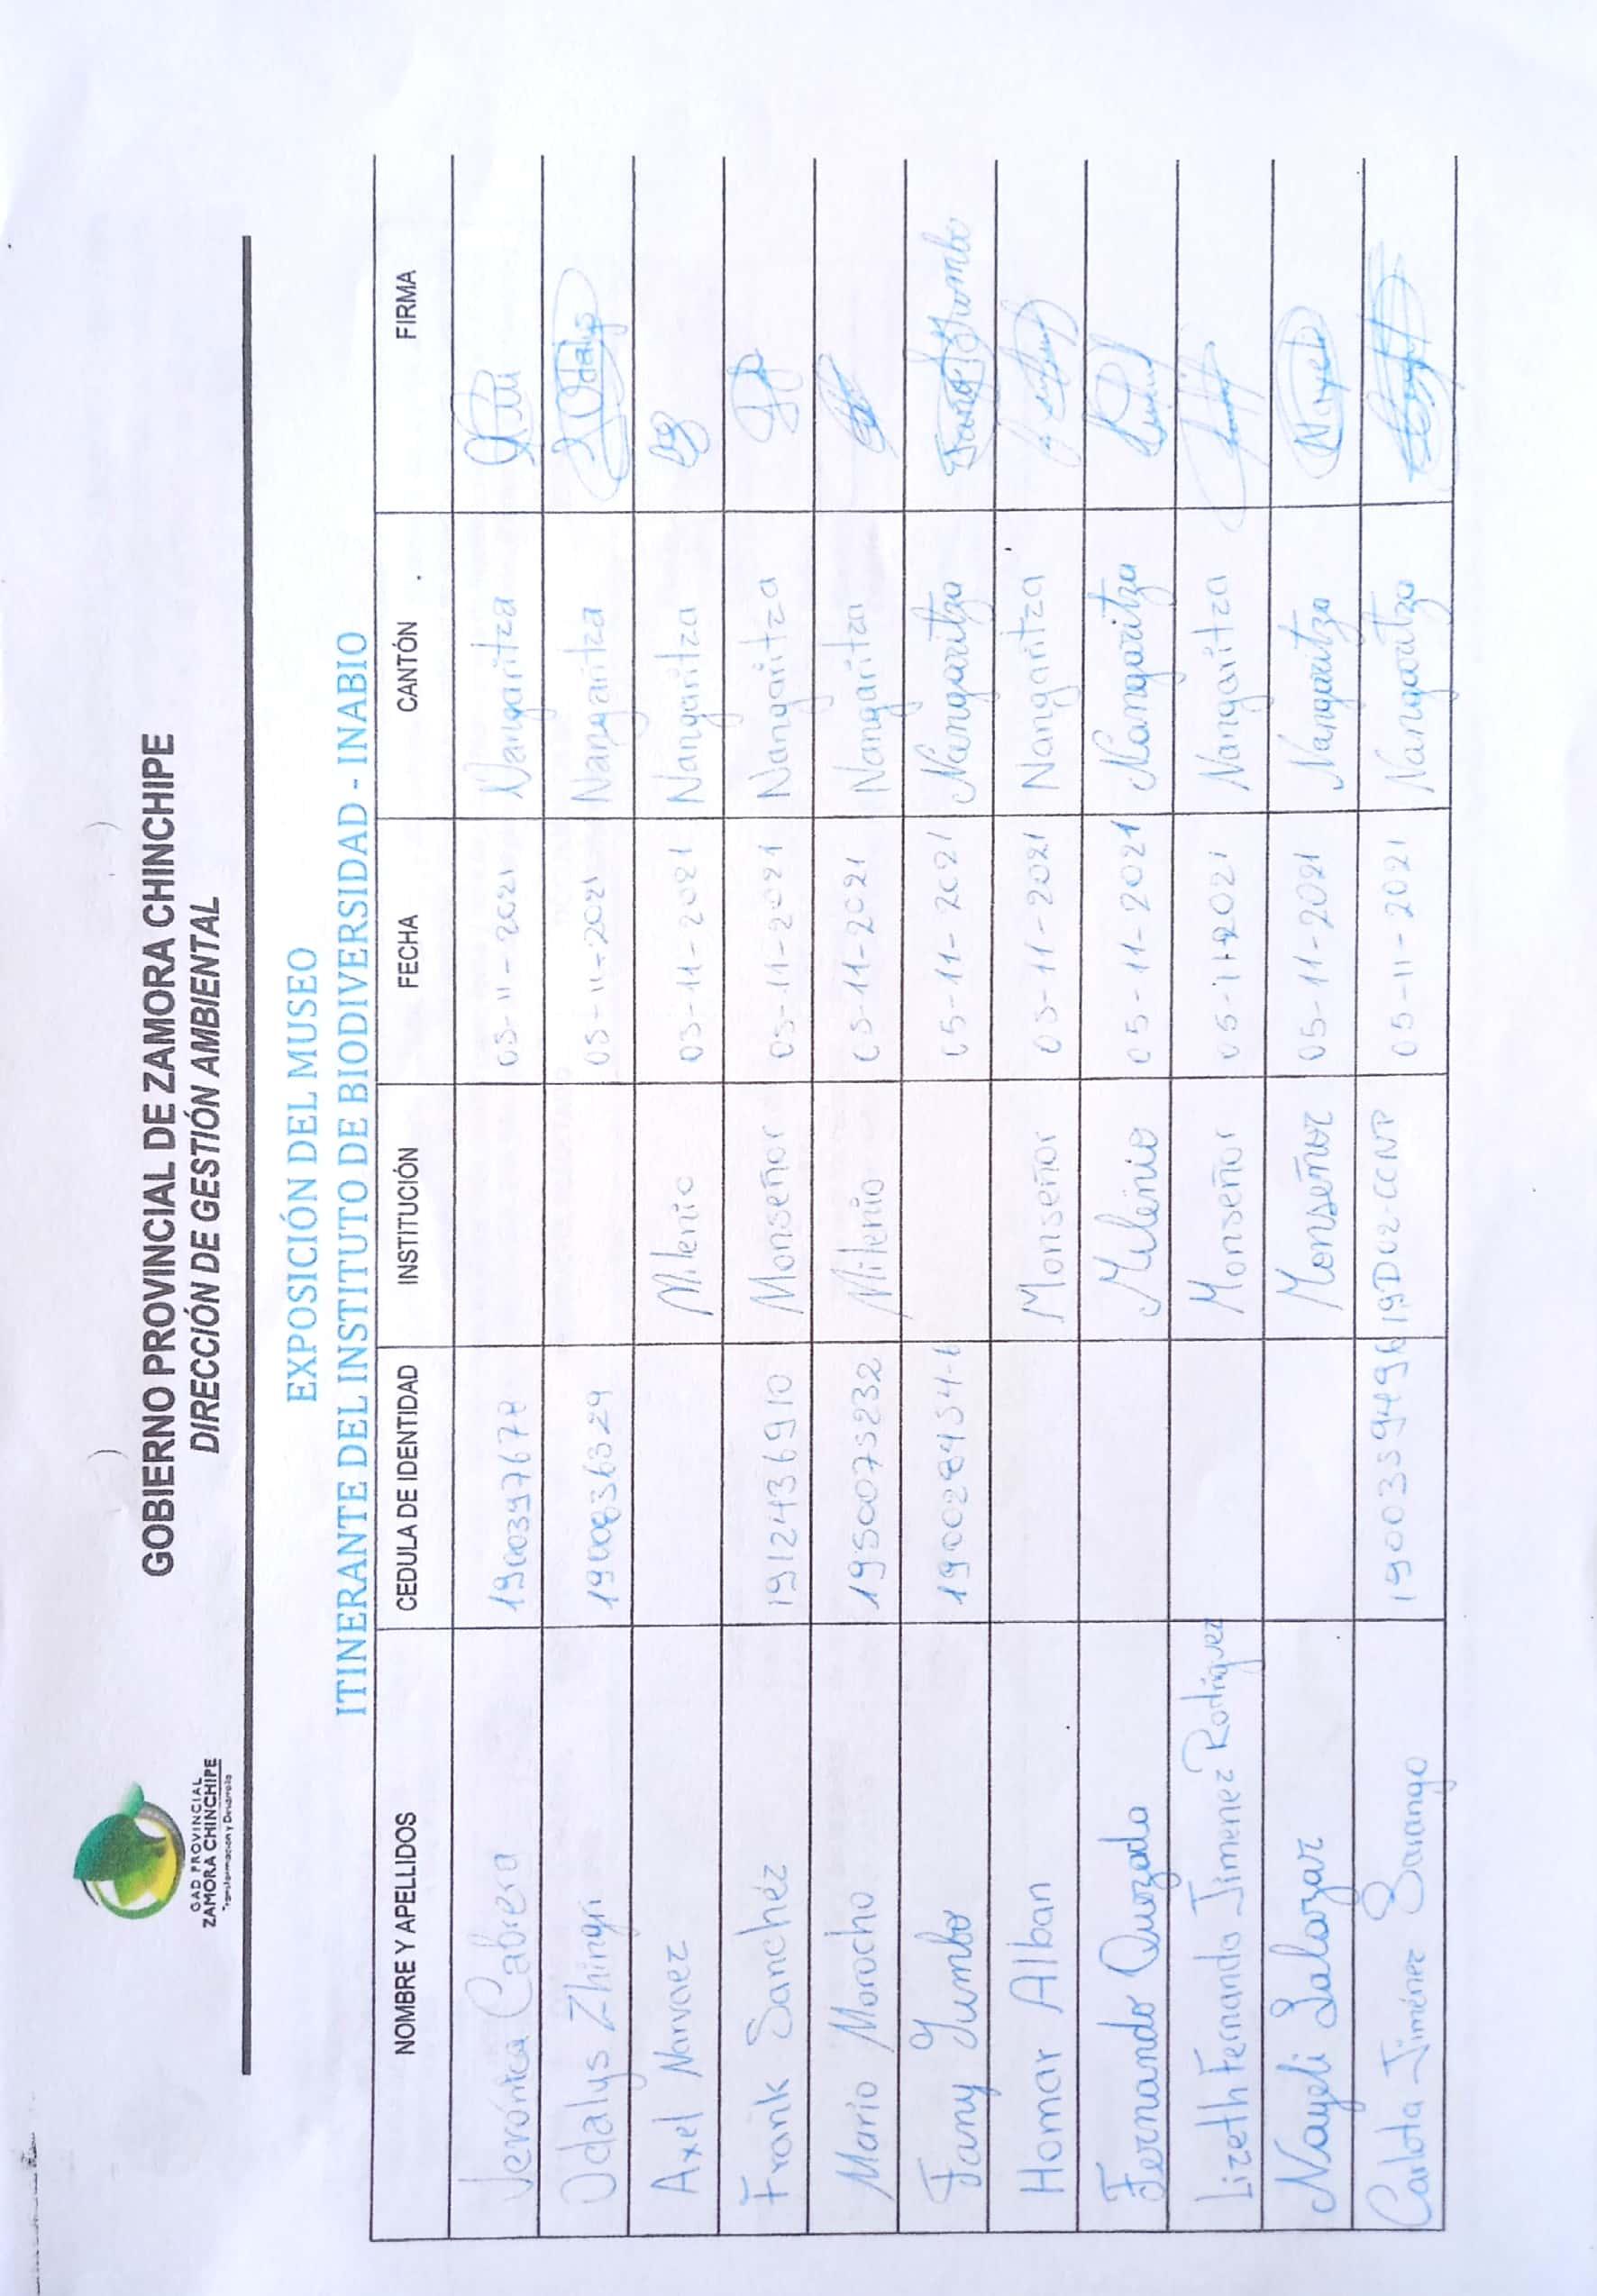 GAD PROVINCIAL
ZAMORA CHINCHIPE
Transformación y Desarrollo
GOBIERNO PROVINCIAL DE ZAMORA CHINCHIPE
DIRECCIÓN DE GESTIÓN AMBIENTAL
EXPOSICIÓN DEL MUSEO
ITINERANTE DEL INSTITUTO DE BIODIVERSIDAD - INABIO
NOMBRE Y APELLIDOS CEDULA DE IDENTIDAD INSTITUCIÓN FECHA CANTÓN FIRMA
Verónica Cabrera 05-11-2021 Nangaritza
Odalys Zhingri 05-11-2021 Nangaritza Odalys
Axel Narvaez Milenio 05-11-2021 Nangaritza
Frank Sanchéz 1912436910 Monseñor 05-11-2021 Nangaritza
Mario Morocho 1950075232 Milenio 05-11-2021 Nangaritza
Fany Jumbo 05-11-2021 Nangaritza Jumbo
Homar Alban Monseñor 05-11-2021 Nangaritza
Fernando Quezada Milenio 05-11-2021 Nangaritza
Lizeth Fernanda Jimenez Rodriguez Monseñor 05-11-2021 Nangaritza
Nayeli Salazar Monseñor 05-11-2021 Nangaritza Nayeli
Carlota Jiménez Sarango 1900359496 19D02-CCNP 05-11-2021 Nangaritza